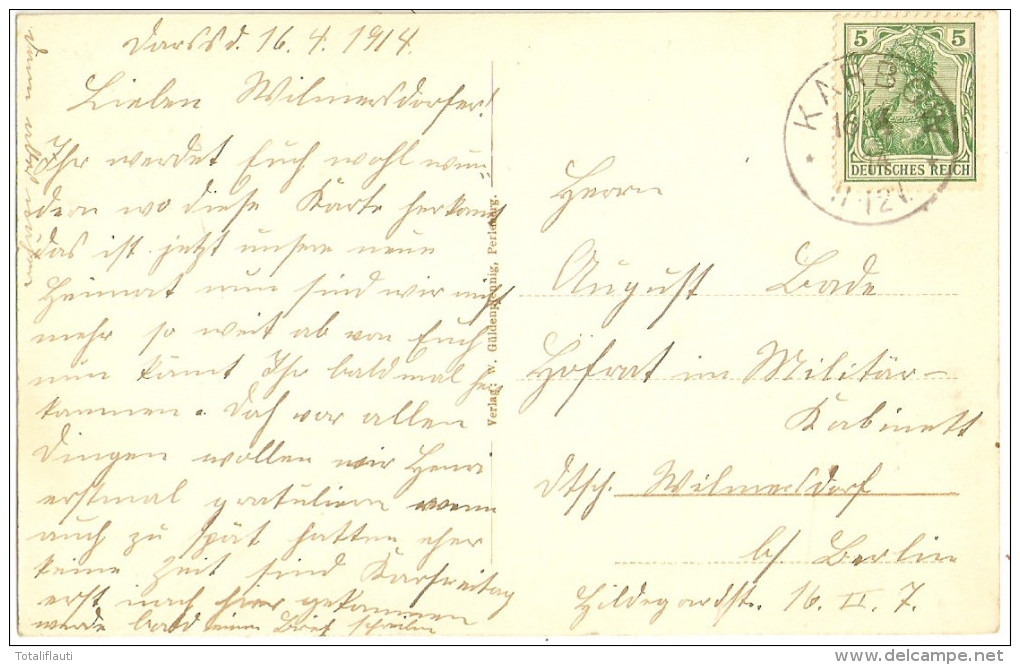 Darss d. 16.4.1914.
Lieben Wilmersdorfer!
Ihr werdet Euch wohl wun
dern wo diese Karte herkomt
das ist jetzt unsere neue
Heimat nun sind wir nicht
mehr so weit ab von Euch
nun könnt Ihr bald mal her
kommen. Doch vor allen
Dingen wollen wir
erstmal gratulieren wenn
auch zu spät hatten eher
keine Zeit sind Karfreitag
erst nach hier gekommen
werde bald einen Brief schreiben
Verlag: W. Güldenpfennig, Perleberg.
5 5
DEUTSCHES REICH
KAR
16 4
14
11-12V.
Herrn
August Bade
Hofrat im Militär-
Kabinett
Dtsch. Wilmersdorf
b/ Berlin
Hildegardstr. 16. II. 7.
Totaliflauti
delcampe.net